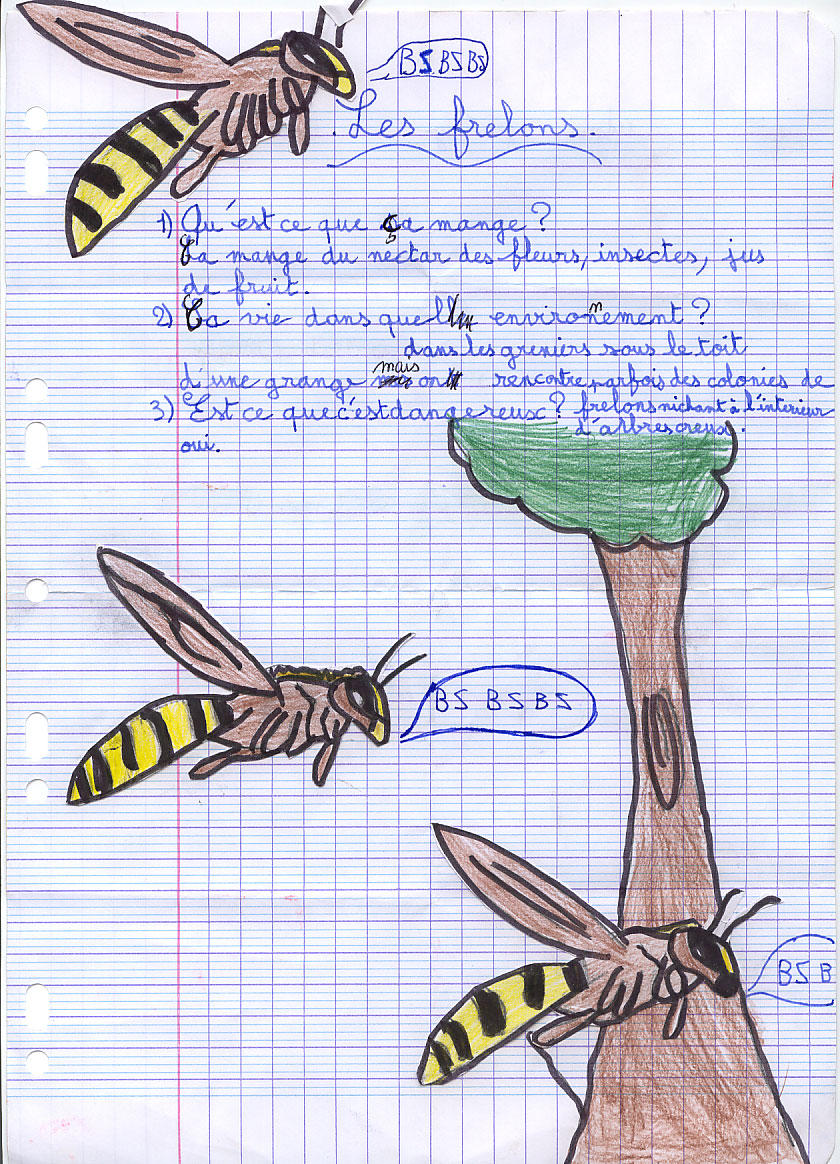 BSBSBS
Les frelons.
1) Qu'est ce que ça mange ?
Ca mange du nectar des fleurs, insectes, jus
de fruit.
2) Ca vie dans quel environnement ?
dans les greniers sous le toit
d'une grange mais on rencontre parfois des colonies de
frelons nichant à l'interieur
d'arbres creux.
3) Est ce que c'est dangereux ?
oui.
BS BS BS
BS B